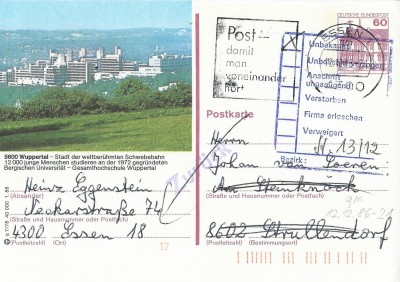 5600 Wuppertal – Stadt der weltberühmten Schwebebahn
12 000 junge Menschen studieren an der 1972 gegründeten
Bergischen Universität – Gesamthochschule Wuppertal
Heinz Eggenstein
(Absender)
Neckarstraße 74
(Straße und Hausnummer oder Postfach)
4300 Essen 18
(Postleitzahl) (Ort)
17
Zurück
Post
damit
man
voneinander
hört
ESSEN
DEUTSCHE BUNDESPOST
60
Unbekannt
Unbekannt verzogen
Anschrift
ungenügend
Verstorben
Firma erloschen
Verweigert
Bezirk:
13/12
Postkarte
Herrn
Johan van Soeren
Am Steinknöck
(Straße und Hausnummer oder Postfach)
12.12.86-21
8602 Strullendorf
(Postleitzahl) (Bestimmungsort)